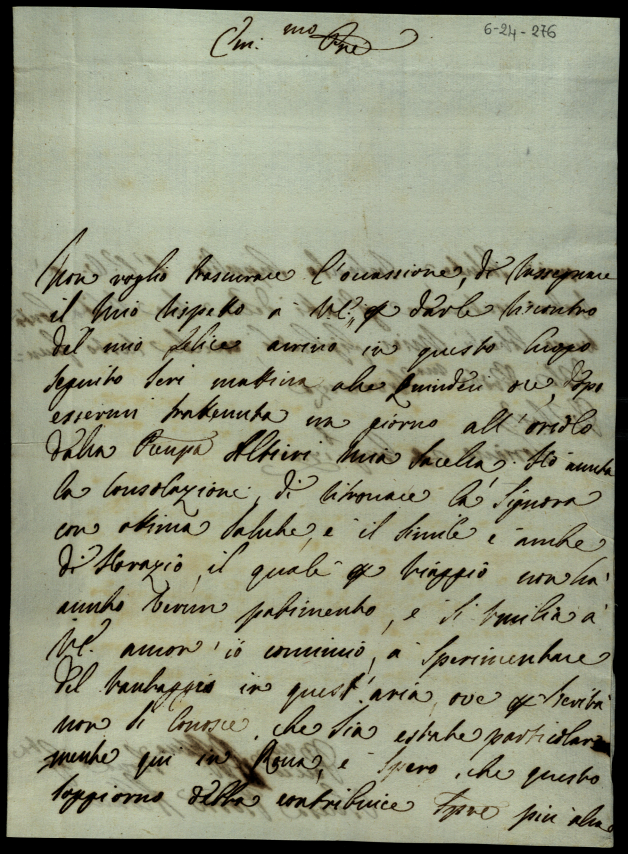 6-24-276
Em.mo Pne
Non voglio trascurare l'occassione, di rassegnare
il mio rispetto a VE., e darle riscontro
del mio felice arrivo in questo luogo
seguito ieri mattina alle quindeci ore, dopo
essermi trattenuta un giorno all'oriolo
dalla Pnpa Altieri mia sorella. Hò auuta
la consolazione, di ritrouare la Signora
con ottima salute, e il simile è anche
di Horazio, il quale viaggio non hà
auuto verun patimento, e si umilia à
VE. ancor'iò comincio, à sperimentare
del vantaggio in quest'aria, ove verità
non si conosce, che sia estate particolar
mente quì in Rocca, e spero, che questo
soggiorno debba contribuire sepre più alla